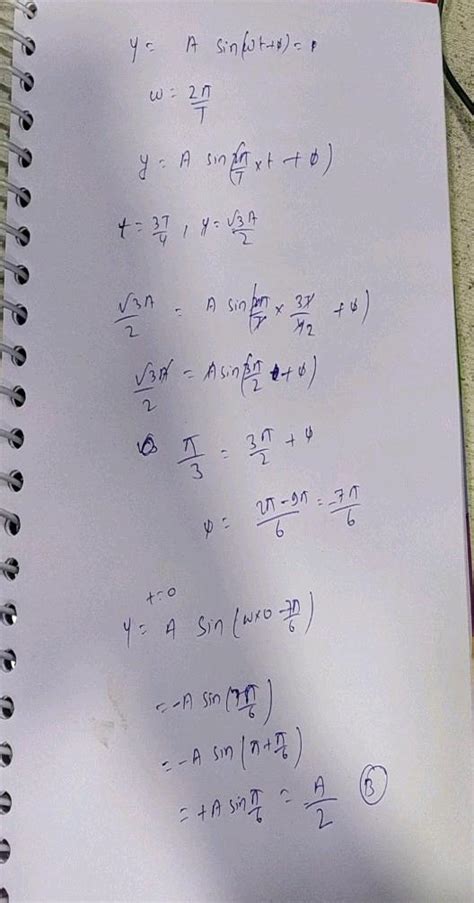 y = A sin(ωt+φ) =
ω = 2π/T
y = A sin(2π/T × t + φ)
t = 3T/4 , y = √3A/2
√3A/2 = A sin(2π/T × 3T/42 + φ)
√3A/2 = A sin(3π/2 + φ)
π/3 = 3π/2 + φ
φ = 2π-9π/6 = -7π/6
t=0
y = A sin(ω×0 - 7π/6)
= -A sin(7π/6)
= -A sin(π + π/6)
= +A sin π/6 = A/2 (B)